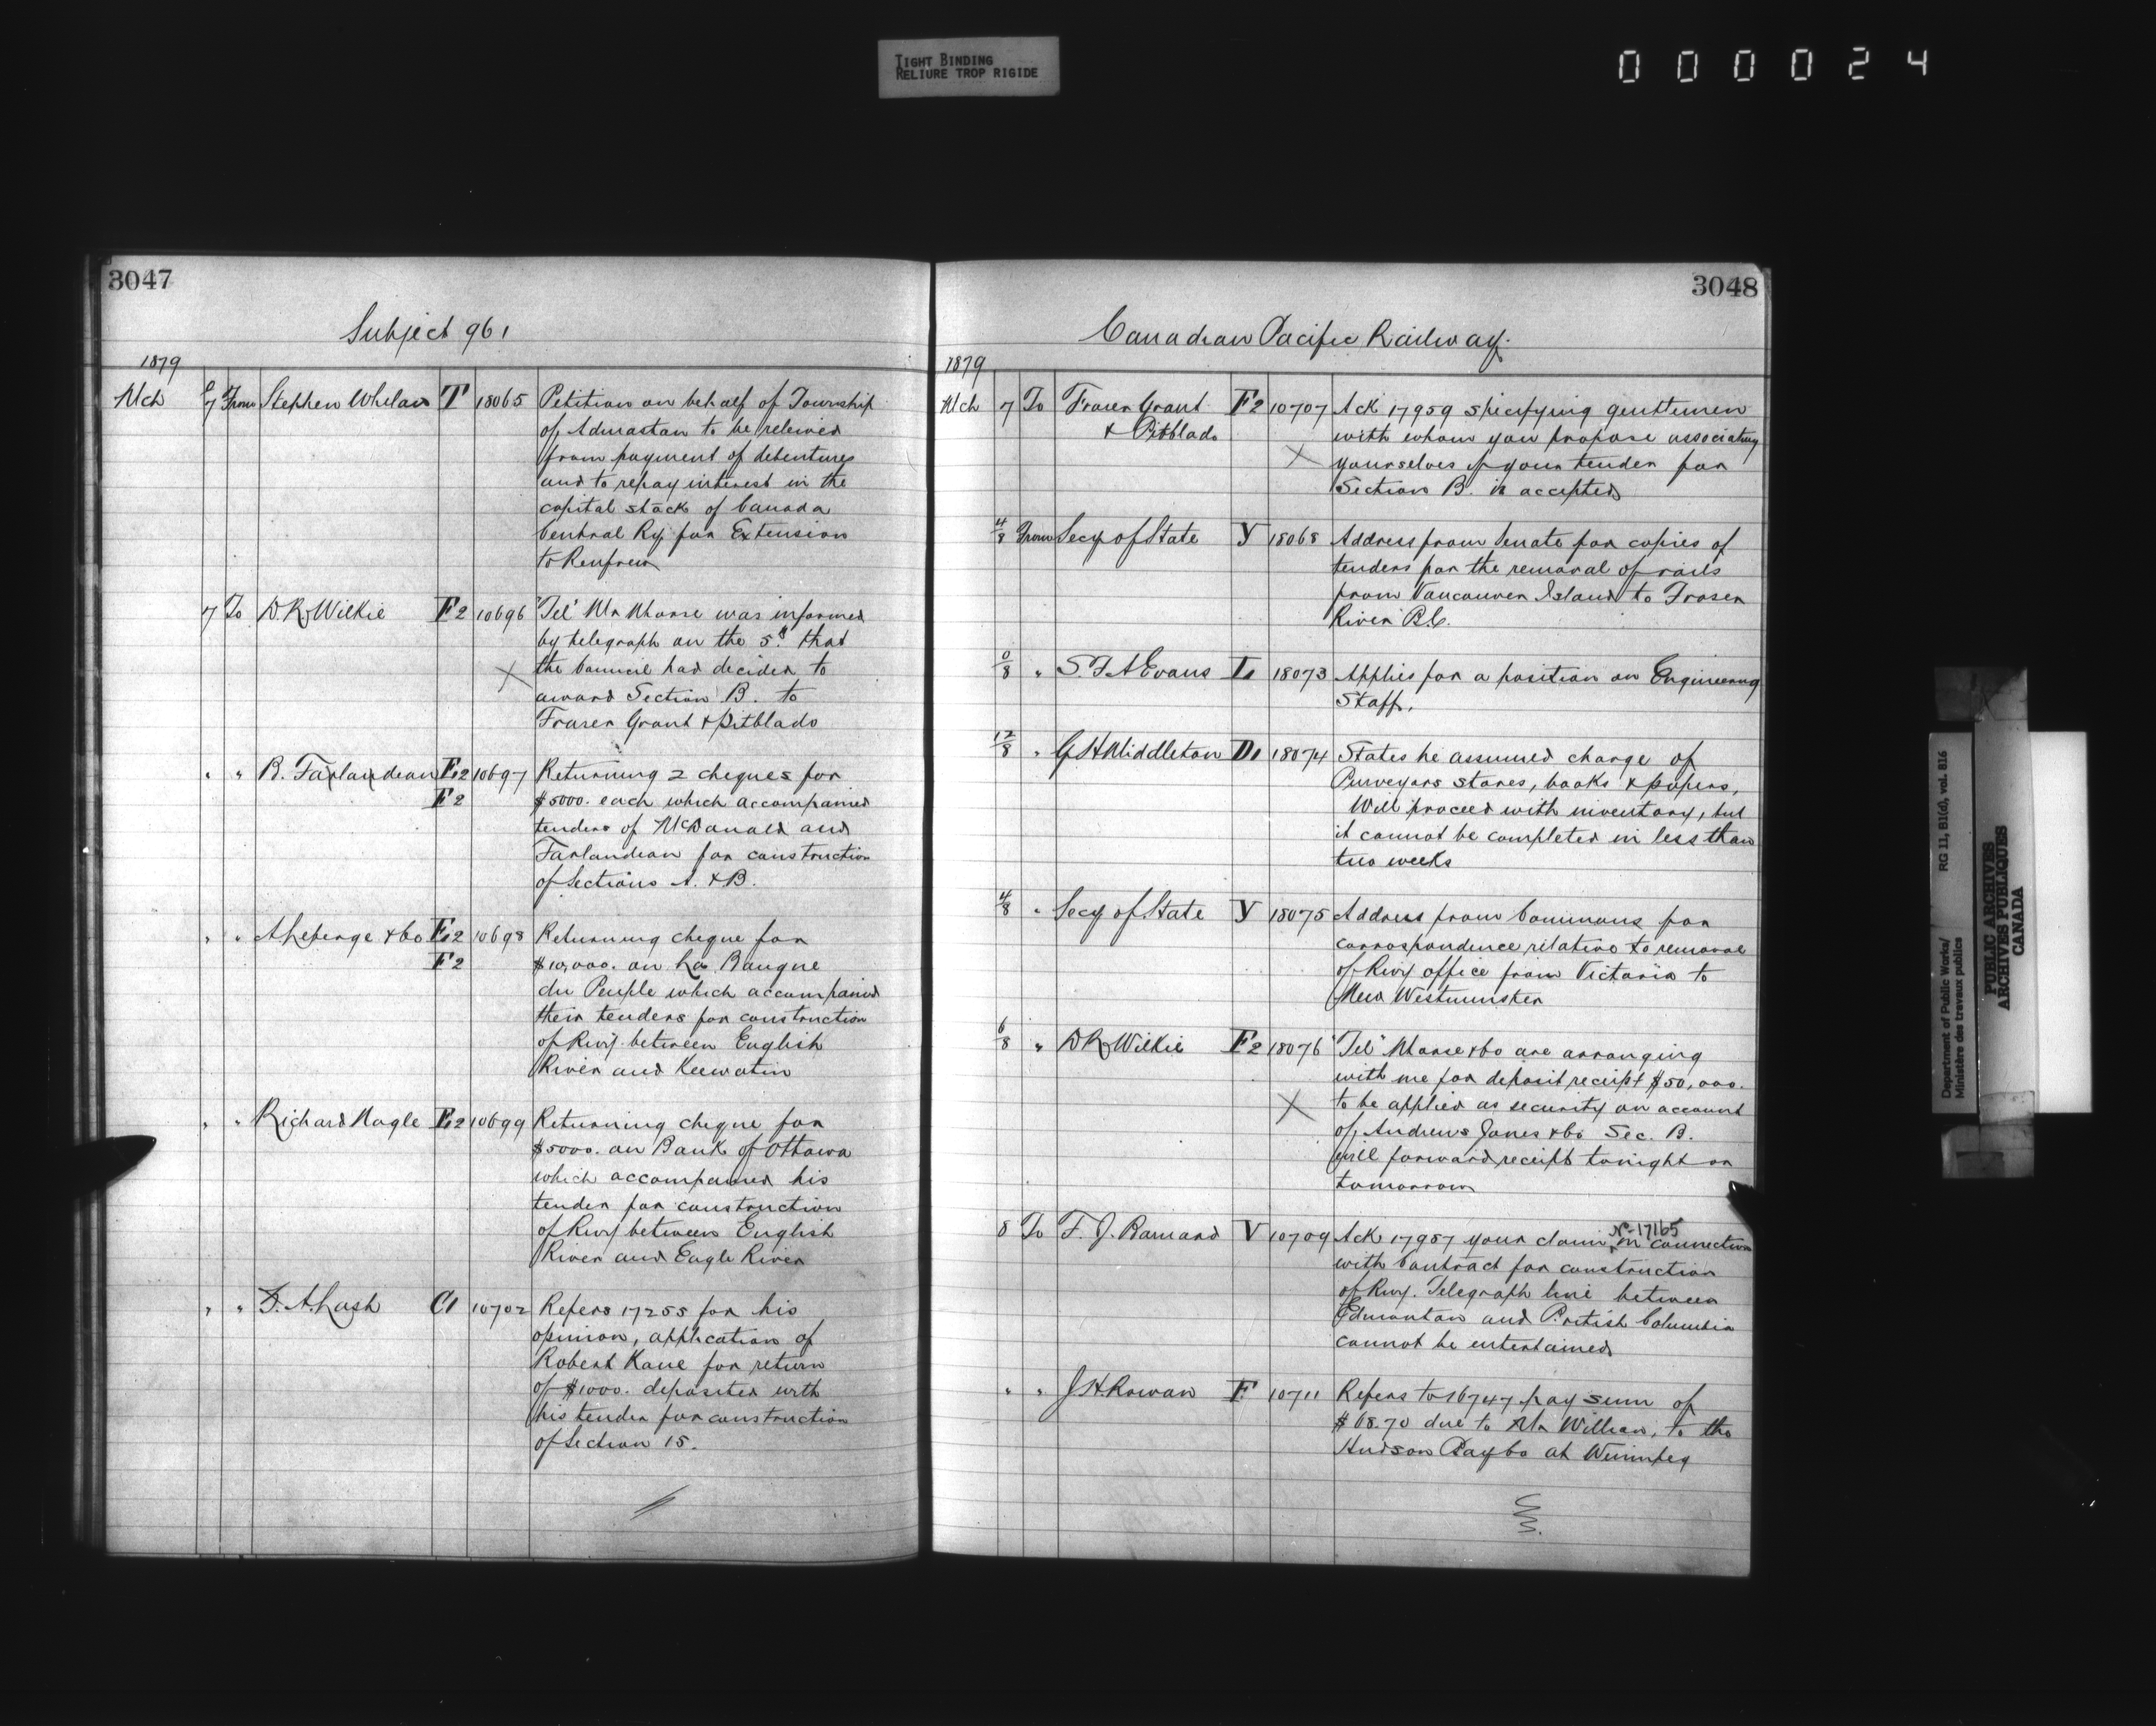 TIGHT BINDING
RELIURE TROP RIGIDE
000024
3047
Subject 961
1879
Mch 7 From Stephen Whelan T 18065 Petition on behalf of Township
of Admaston to be releived
from payment of debentures
and to repay interest in the
capital stock of Canada
Central Ry. for Extension
to Renfrew
7 To D.R. Wilkie F2 10696 "Tel" Mr Morse was informed
by telegraph on the 5th that
X the Council had decided to
award Section B. to
Fraser Grant & Pitblado
" " B. Farlandean F2 10697 Returning 2 cheques for
F2 $5000. each which accompanied
tenders of McDonald and
Farlandean for construction
of Sections A. & B.
" " A Leberge & Co F2 10698 Returning cheque for
F2 $10,000. on La Banque
du Peuple which accompanied
their tenders for construction
of Rwy. between English
River and Keewatin
" " Richard Nagle F2 10699 Returning cheque for
$5000. on Bank of Ottawa
which accompanied his
tender for construction
of Rwy between English
River and Eagle River
" " Z. A. Lash C1 10702 Refers 17255 for his
opinion, application of
Robert Kane for return
of $1000. deposited with
his tender for construction
of Section 15.
3048
Canadian Pacific Railway.
1879
Mch 7 To Fraser Grant F2 10707 Ack 17959 specifying gentlemen
& Pitblado with whom you propose associating
X yourselves if your tender for
Section B. is accepted
4/8 From Secy of State Y 18068 Address from Senate for copies of
tenders for the removal of rails
from Vancouver Island to Fraser
River B.C.
8 " S. F. A Evans 18073 Applies for a position on Engineering
Staff.
12/8 " G H Middleton D1 18074 States he assumed charge of
Purveyors stores, books & papers,
Will proceed with inventory, but
it cannot be completed in less than
two weeks
4/8 " Secy of State Y 18075 Address from Commons for
correspondence relative to removal
of Rwy office from Victoria to
New Westminster
6/8 " D R Wilkie F2 18076 "Tel" Morse & Co are arranging
with me for deposit receipt $50,000.
X to be applied as security on account
of Andrews Jones & Co Sec. B.
will forward receipt tonight or
tomorrow
No 17165
8 To F. J. Barnard V 10709 Ack 17957 your claim in connection
with Contract for construction
of Rwy. Telegraph line between
Edmonton and British Columbia
cannot be entertained
" " J H Rowan F 10711 Refers to 16747 pay sum of
$68.70 due to Mr Willson, to the
Hudson Bay Co at Winnipeg
Department of Public Works/ RG 11, B1(d), vol. 816
Ministère des travaux publics
PUBLIC ARCHIVES
ARCHIVES PUBLIQUES
CANADA